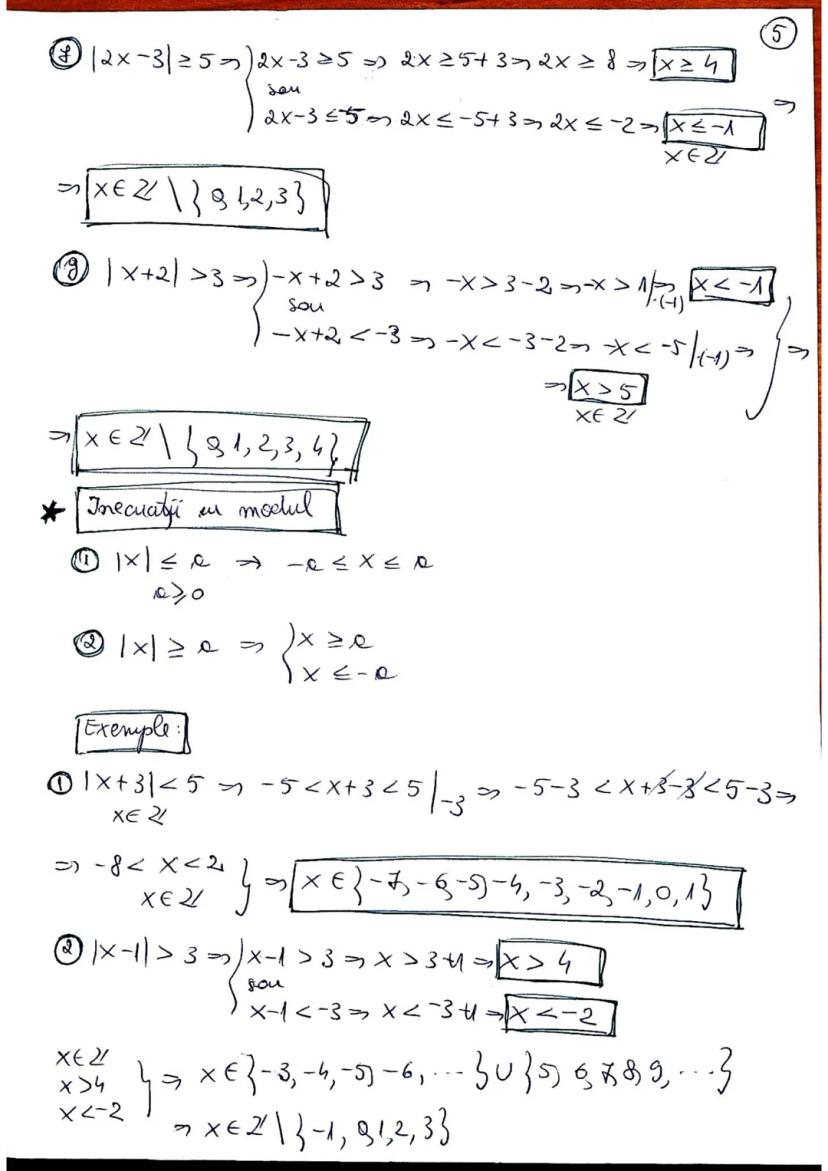 5
f) |2x-3| ≥ 5 ⇒ 2x-3 ≥ 5 ⇒ 2x ≥ 5+3 ⇒ 2x ≥ 8 ⇒ x ≥ 4
sau
2x-3 ≤ -5 ⇒ 2x ≤ -5+3 ⇒ 2x ≤ -2 ⇒ x ≤ -1 ⇒
x ∈ Z
⇒ x ∈ Z \ {0, 1, 2, 3}
g) |x+2| > 3 ⇒ -x+2 > 3 ⇒ -x > 3-2 ⇒ -x > 1 |·(-1) ⇒ x < -1
sau
-x+2 < -3 ⇒ -x < -3-2 ⇒ -x < -5 |·(-1) ⇒ ⇒
⇒ x > 5
x ∈ Z
⇒ x ∈ Z \ {0, 1, 2, 3, 4}
* Inecuații cu modul
1 |x| ≤ a ⇒ -a ≤ x ≤ a
a ≥ 0
2 |x| ≥ a ⇒ { x ≥ a
x ≤ -a
Exemple:
1 |x+3| < 5 ⇒ -5 < x+3 < 5 |-3 ⇒ -5-3 < x+3-3 < 5-3 ⇒
x ∈ Z
⇒ -8 < x < 2
x ∈ Z } ⇒ x ∈ {-7, -6, -5, -4, -3, -2, -1, 0, 1}
2 |x-1| > 3 ⇒ x-1 > 3 ⇒ x > 3+1 ⇒ x > 4
sau
x-1 < -3 ⇒ x < -3+1 ⇒ x < -2
x ∈ Z
x > 4 } ⇒ x ∈ {-3, -4, -5, -6, ...} ∪ {5, 6, 7, 8, 9, ...}
x < -2
⇒ x ∈ Z \ {-1, 0, 1, 2, 3}